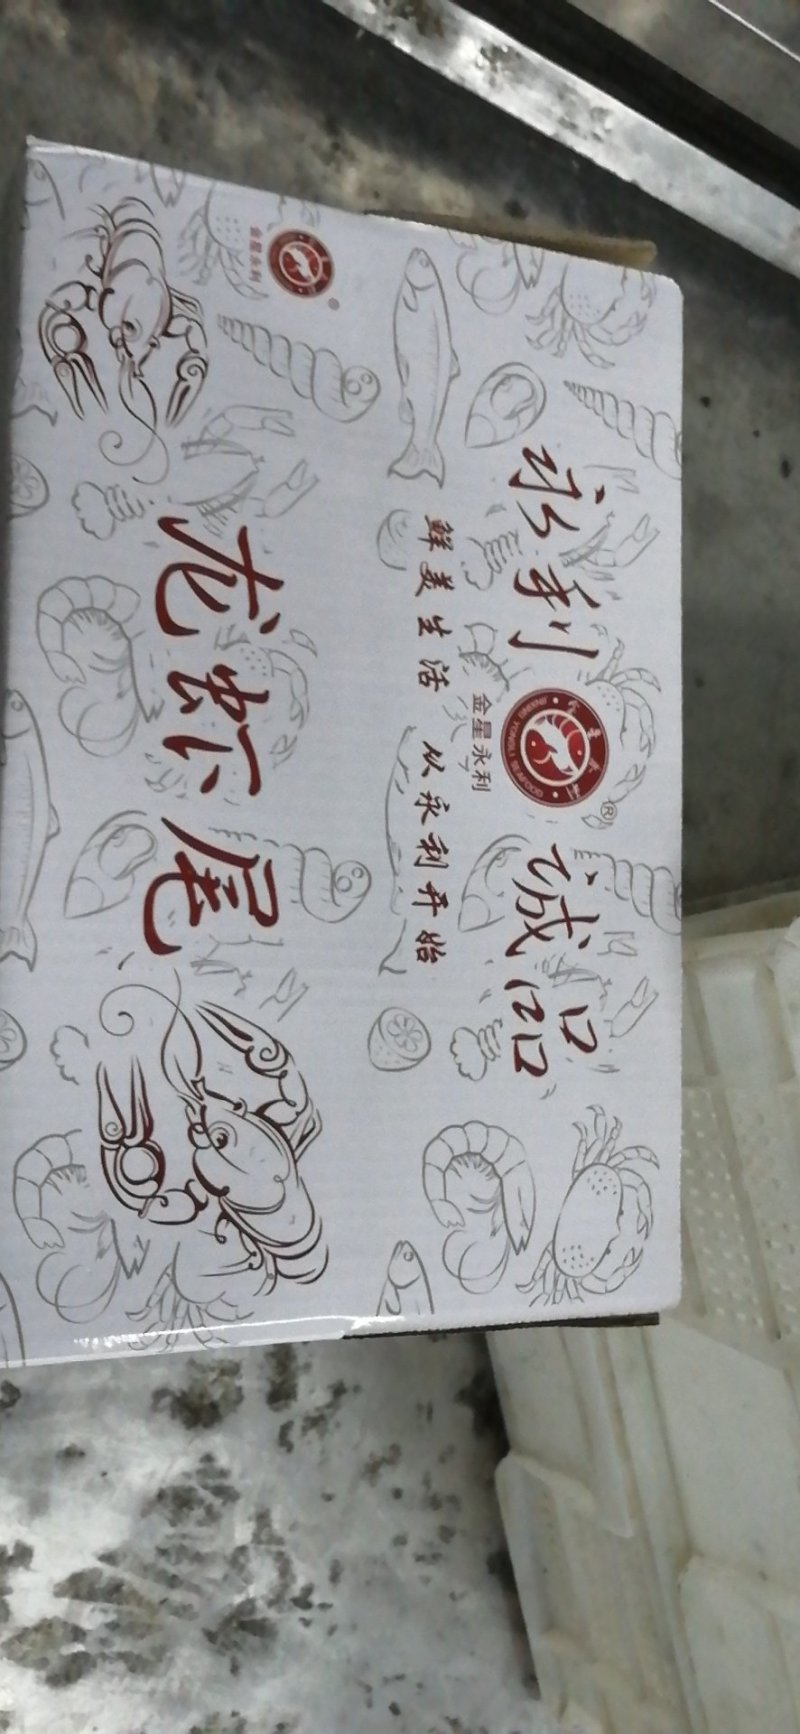 永利 诚品
金星永利
JINXING YONGLI SEAFOOD
®
鲜美生活 从永利开始
龙虾尾
金星永利
®